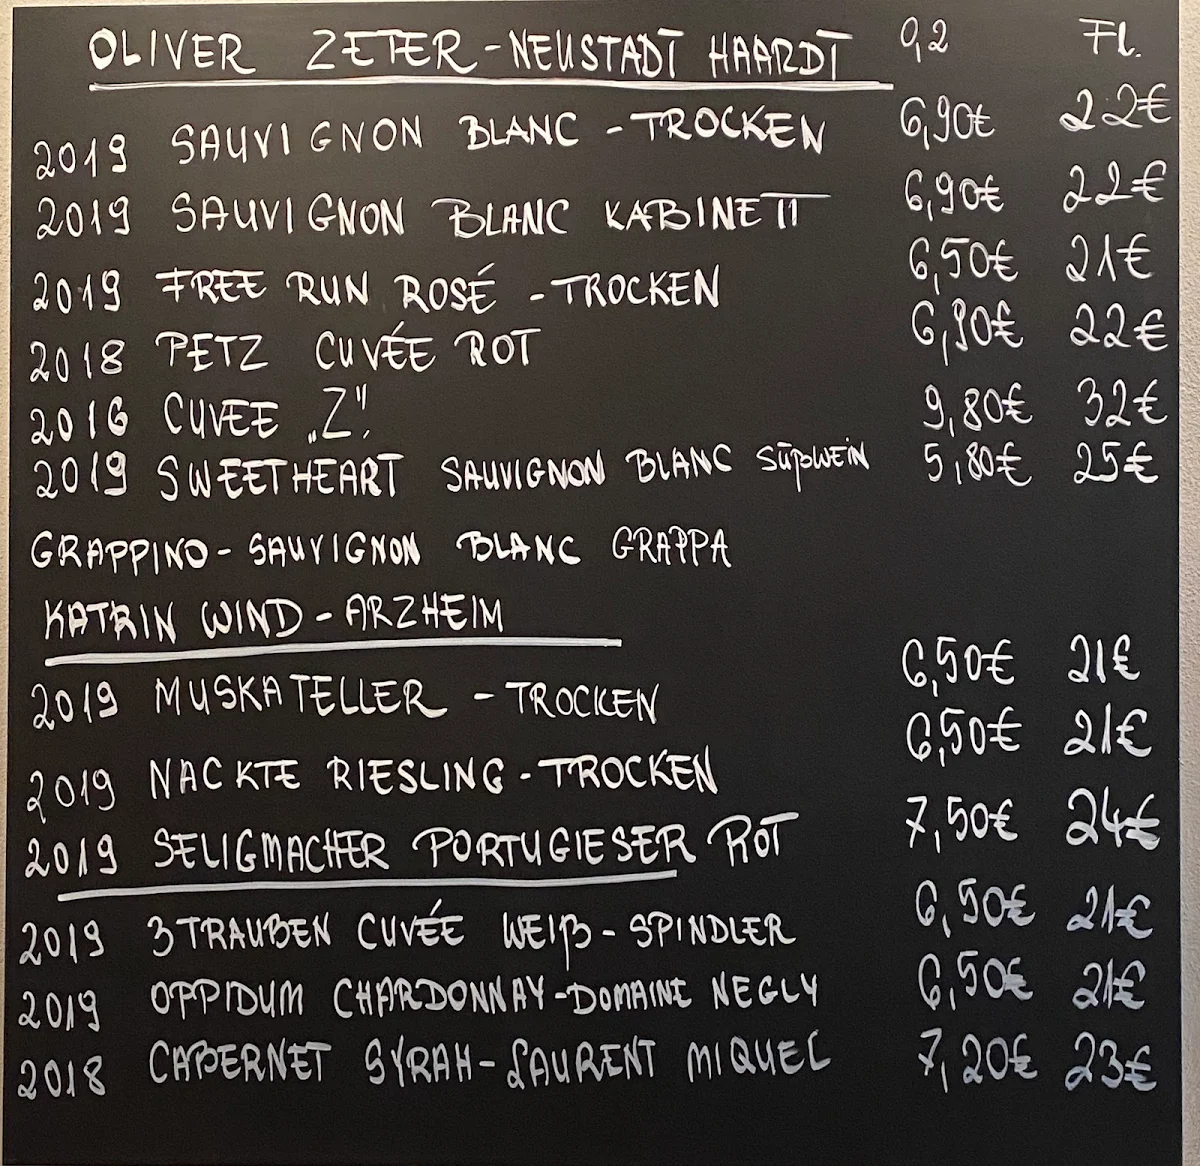 OLIVER ZETER - NEUSTADT HAARDT 0,2 Fl.
2019 SAUVIGNON BLANC - TROCKEN 6,90€ 22€
2019 SAUVIGNON BLANC KABINETT 6,90€ 22€
2019 FREE RUN ROSÉ - TROCKEN 6,50€ 21€
2018 PETZ CUVÉE ROT 6,90€ 22€
2016 CUVEE „Z“! 9,80€ 32€
2019 SWEETHEART SAUVIGNON BLANC SÜßWEIN 5,80€ 25€
GRAPPINO - SAUVIGNON BLANC GRAPPA
KATRIN WIND - ARZHEIM
2019 MUSKATELLER - TROCKEN 6,50€ 21€
2019 NACKTE RIESLING - TROCKEN 6,50€ 21€
2019 SELIGMACHER PORTUGIESER ROT 7,50€ 24€
2019 3TRAUBEN CUVÉE WEIß - SPINDLER 6,50€ 21€
2019 OPPIDUM CHARDONNAY - DOMAINE NEGLY 6,50€ 21€
2018 CABERNET SYRAH - LAURENT MIQUEL 7,20€ 23€